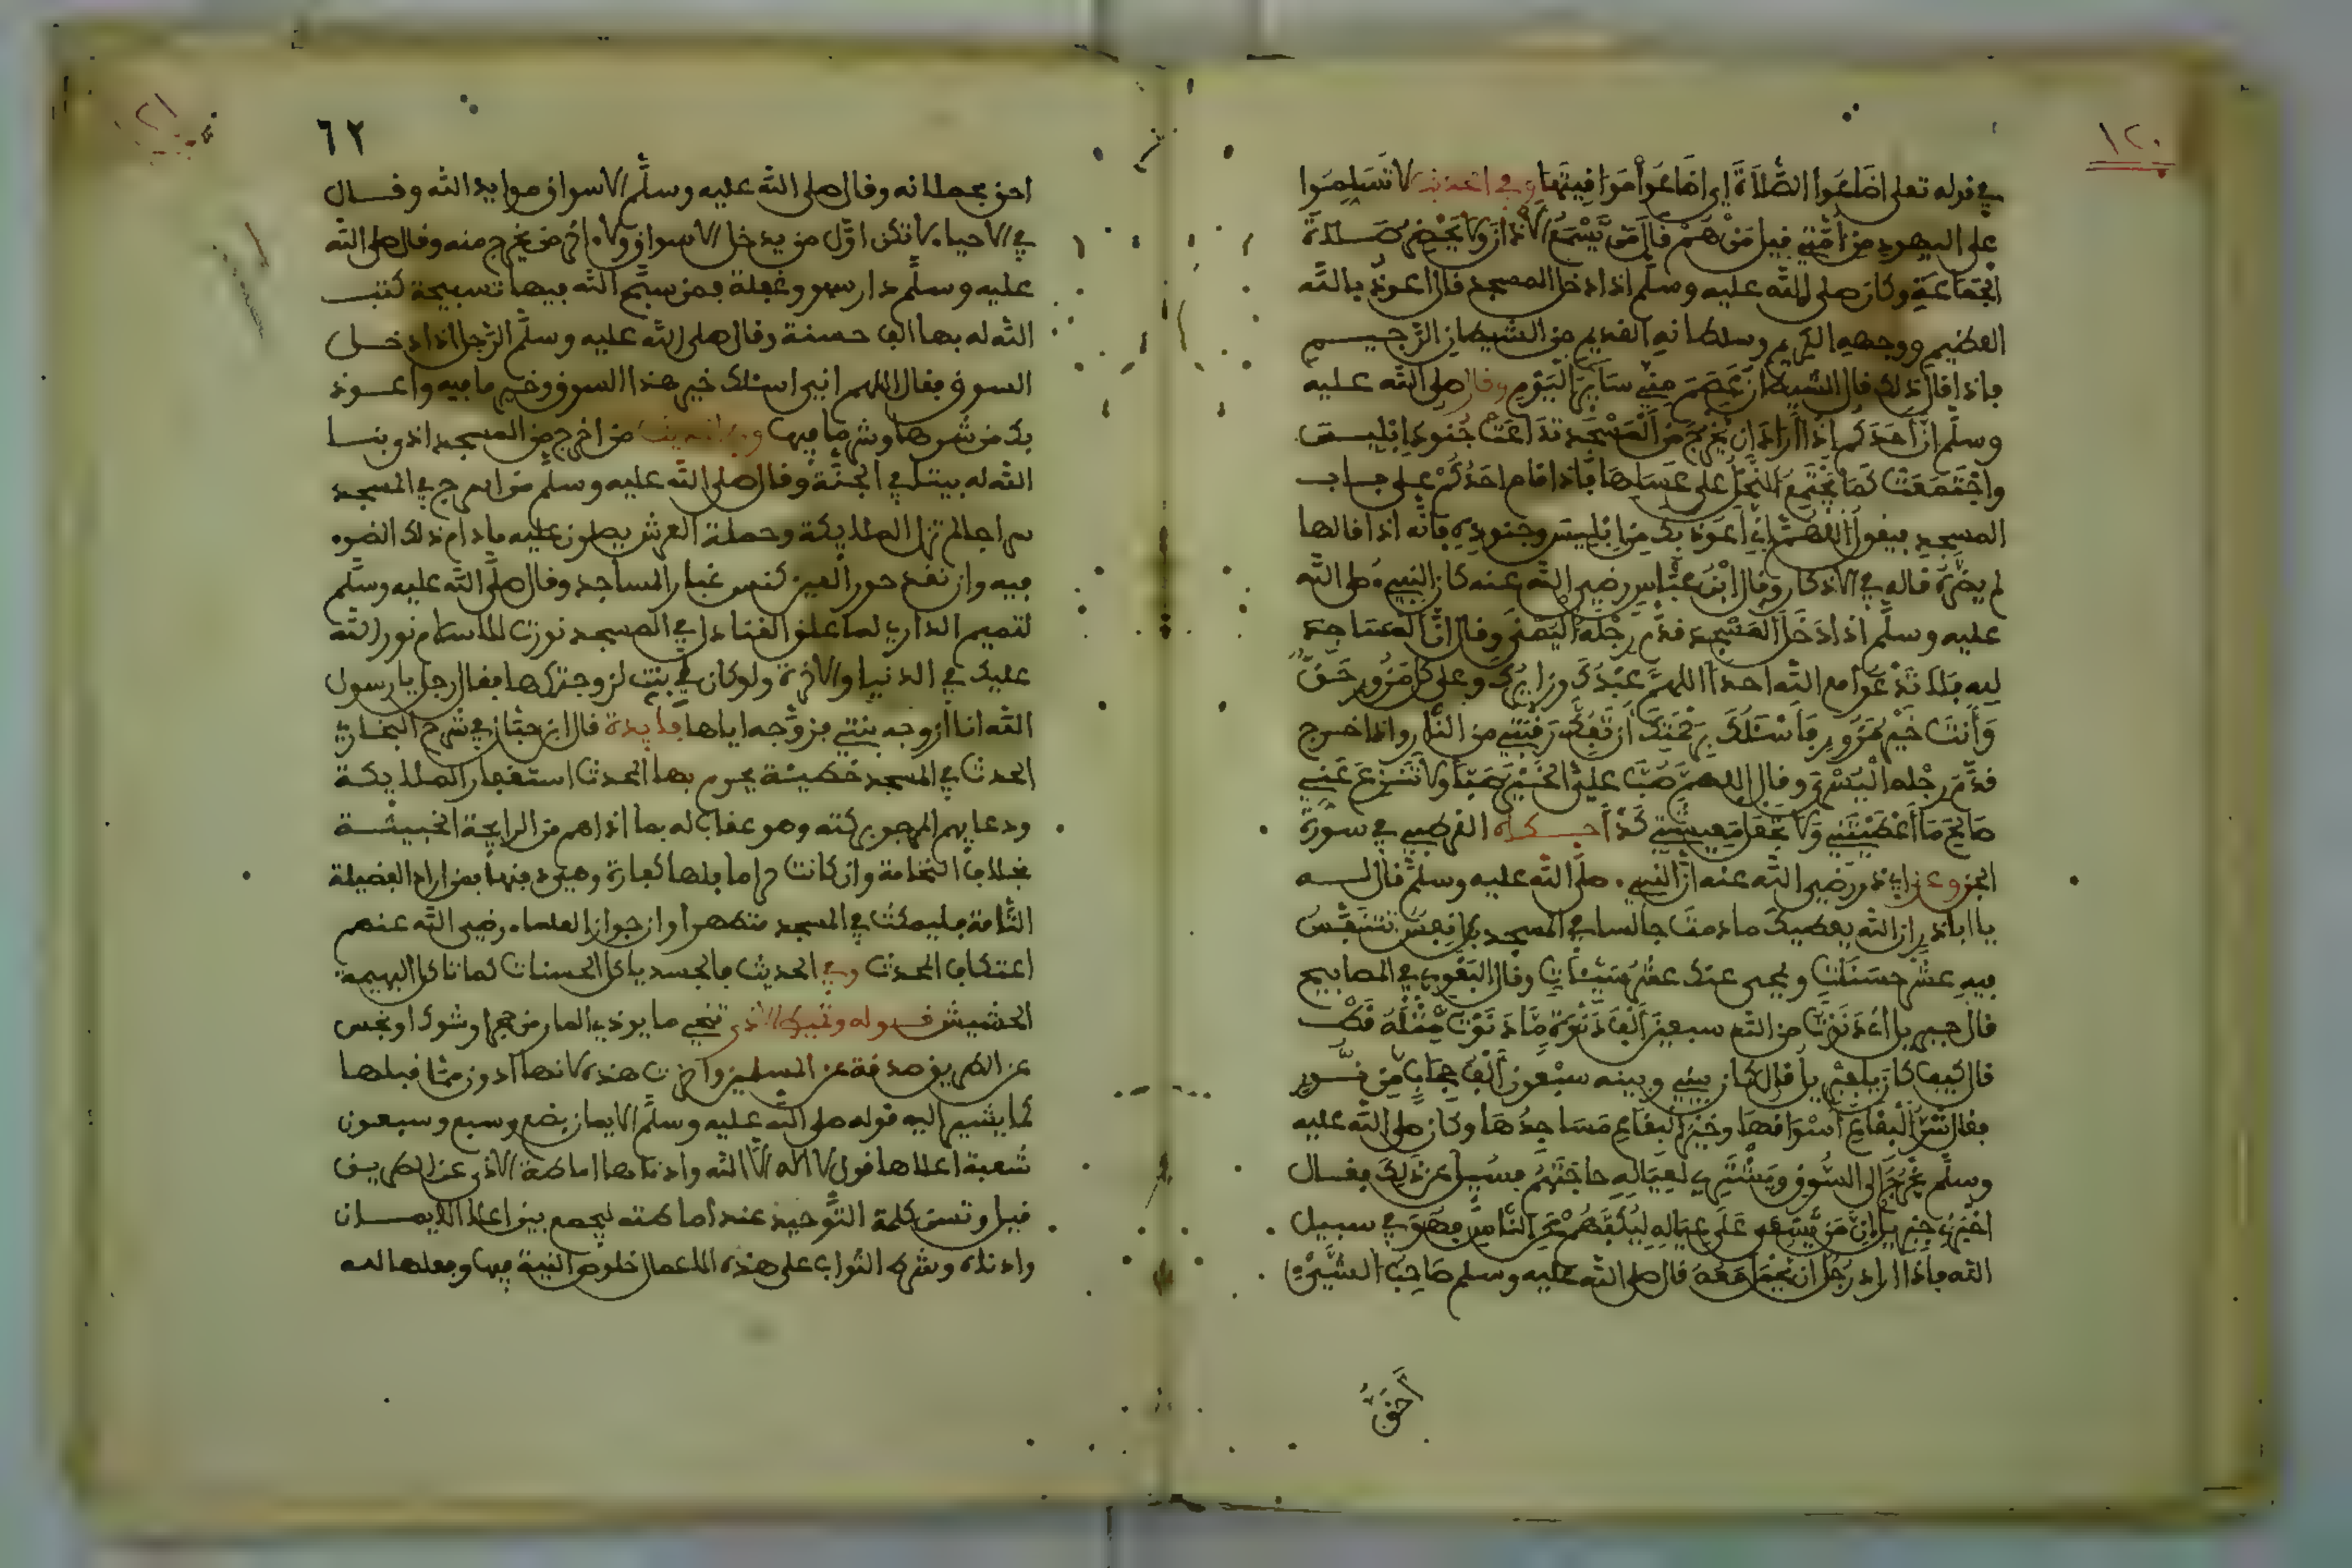 ١٢٠
في قوله تعلى اضاعوا الصلاة اي اضاعوا مواقيتها وفي الحديث لا تسلموا
على اليهود من أمتي قيل من هم قال من يسمع الاذان ولا يحضر صلاة
الجماعة وكان صلى الله عليه وسلم اذا دخل المسجد قال اعوذ بالله
العظيم ووجهه الكريم وسلطانه القديم من الشيطان الرجيم
فاذا قال ذلك قال الشيطان عصم مني ساير اليوم وقال صلى الله عليه
وسلم ان احدكم اذا اراد ان يخرج من المسجد تداعت جنود ابليس
واجتمعت كما يجتمع النحل على عسلها فاذا قام احدكم على باب
المسجد فيقول اللهم اني اعوذ بك من ابليس وجنوده فانه اذا قالها
لم يضره قاله في الاذكار وقال ابن عباس رضي الله عنه كان النبيء صلى الله
عليه وسلم اذا دخل المسجد قدم رجله اليمنى وقال ان المساجد
لله فلا تدعوا مع الله احدا اللهم عبدك وزايرك وعلى كل مزور حق
وأنت خير مزور فأسئلك برحمتك ان تفك رقبتي من النار واذا خرج
قدم رجله اليسرى وقال اللهم صب علي الخير صبا ولا تنزع عني
صالح ما أعطيتني ولا تجعل معيشتي كدا حكاه القرطبي في سورة
الجن وعن ابي ذر رضي الله عنه ان النبيء صلى الله عليه وسلم قال له
يا اباذر ان الله يعطيك ما دمت جالسا في المسجد بكل نفس تتنفس
فيه عشر حسنات ويمحى عنك عشر سيئات وقال البغوي في المصابيح
قال جبريل اني دنوت من الله سبعين ألف دنوة ما دنوت مثله قط
قال كيف كان يا جبريل قال كان بيني وبينه سبعون ألف حجاب من نور
فقال شر البقاع أسواقها وخير البقاع مساجدها وكان صلى الله عليه
وسلم يخرج الى السوق ويشتري لعياله حاجتهم فسيل عن ذلك فقال
اخبرني جبريل ان من يسعى على عياله ليكفهم عن الناس فهو في سبيل
الله فاذا اراد رجل ان يحمل معه قال صلى الله عليه وسلم صاحب الشيء
أحق
٦٢
احق بحملانه وقال صلى الله عليه وسلم الاسواق موايد الله وقال
في الاحياء لا تكن اول من يدخل الاسواق ولا اخر من يخرج منه وقال صلى الله
عليه وسلم دار سهو وغفلة فمن سبح الله فيها تسبيحة كتب
الله له بها الف حسنة وقال صلى الله عليه وسلم الرجل اذا دخل
السوق فقال اللهم اني اسئلك خير هذا السوق وخير ما فيه واعوذ
بك من شرها وشر ما فيها وفي الحديث من اخرج من المسجد اذى بنا
الله له بيتا في الجنة وقال صلى الله عليه وسلم من اسرج في المسجد
سراجا لم تزل الملايكة وحملة العرش يصلون عليه مادام ذلك الضوء
فيه وان نقد حور العين كنس غبار المساجد وقال صلى الله عليه وسلم
لتميم الداري لما علق القناديل في المسجد نورت الاسلام نور الله
عليك في الدنيا والاخرة ولو كان لي بنت لزوجتكها فقال رجل يا رسول
الله انا ازوجه بنتي فزوجه اياها فايدة قال ابن حبان في شرح البخاري
الحدث في المسجد خطيئة يحرم بها المحدث استغفار الملايكة
ودعايهم المرجو بركته وهو عقاب له بما اذاهم من الرايحة الخبيثة
بخلاف النخامة وان كانت حراما فلها كفارة وهي دفنها فمن اراد الفضيلة
التامة فليمكث في المسجد متطهرا وان جوز العلماء رضي الله عنهم
اعتكاف المحدث وفي الحديث فالحسد ياكل الحسنات كما تاكل البهيمة
الحشيش قوله وتميط الاذى تنحي ما يوذي المار من حجر او شوك او نجس
عن الطريق صدقة عن المسلمين واخرت هذه لانها ادون مما قبلها
كما يشير اليه قوله صلى الله عليه وسلم الايمان بضع وسبع وسبعون
شعبة اعلاها قول لا اله الا الله وادناها اماطة الاذى عن الطريق
قيل وتسن كلمة التوحيد عند اماطته ليجمع بين اعلا الايمان
وادناه وشرط الثواب على هذه الاعمال خلوص النية فيها وفعلها لله